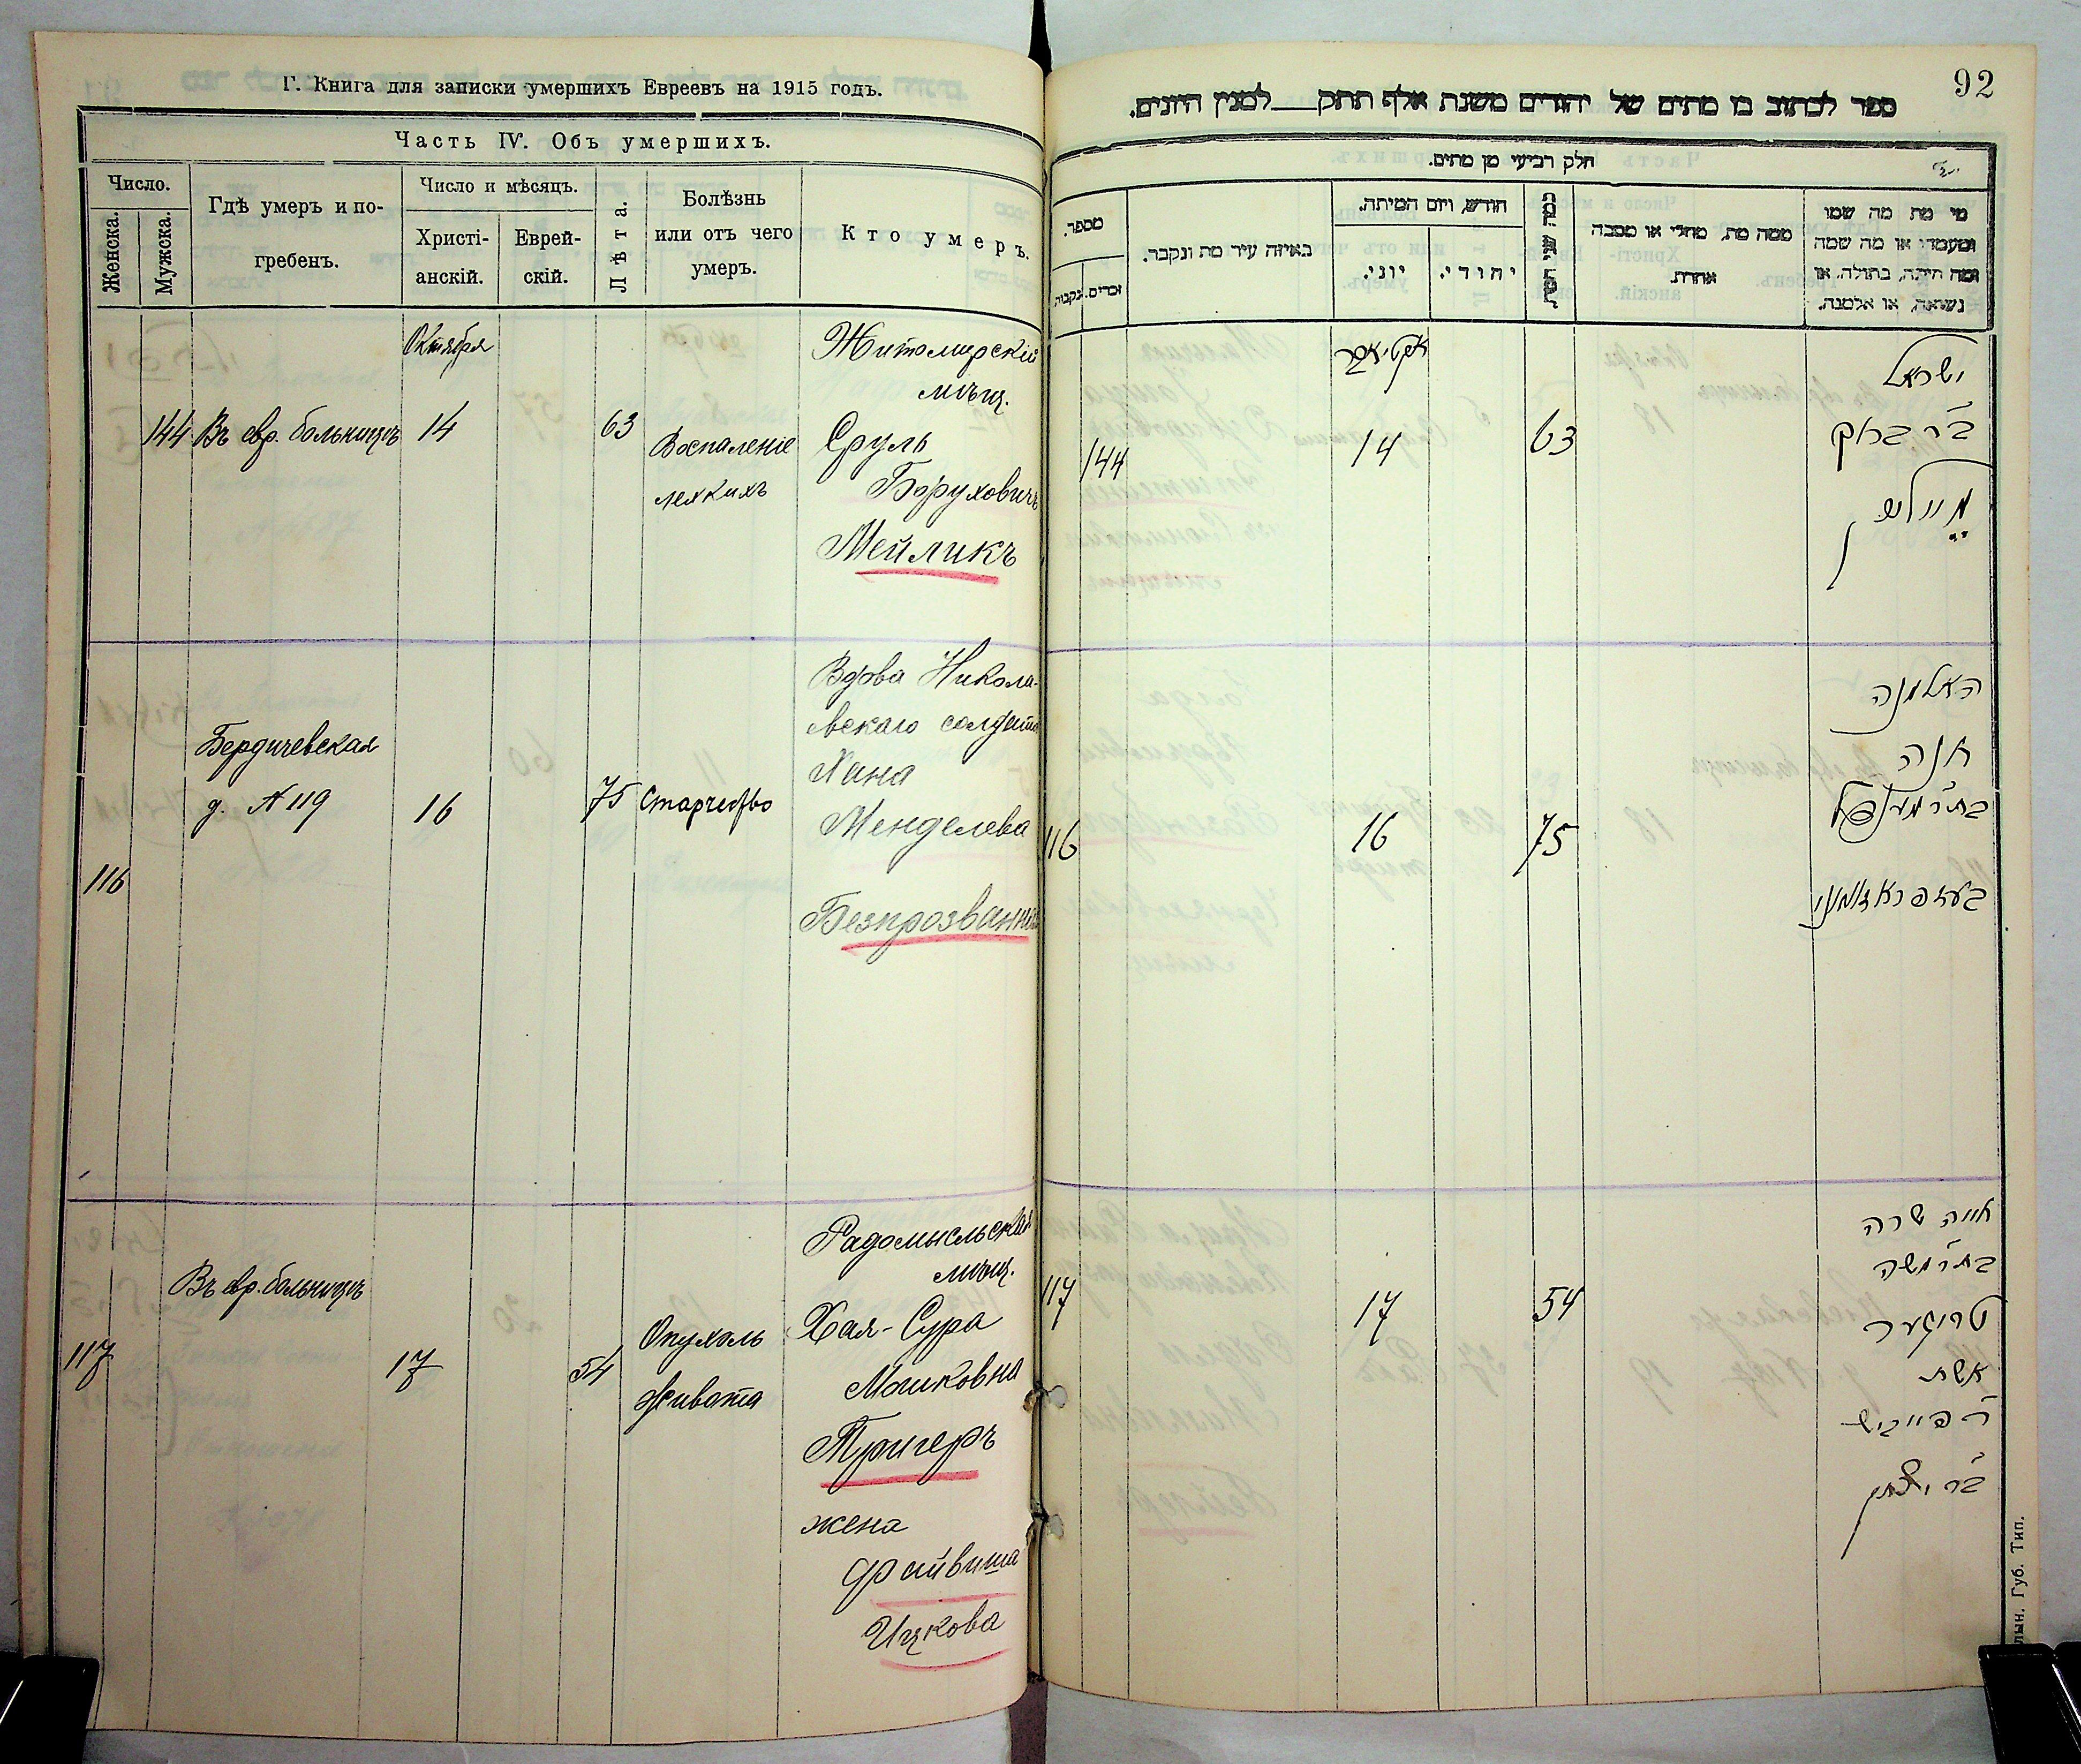 Г. Книга для записки умершихъ Евреевъ на 1915 годъ.
Часть IV. Объ умершихъ.
Число.
Женска.
Мужска.
Гдѣ умеръ и по-
гребенъ.
Число и мѣсяцъ.
Христі-
анскій.
Еврей-
скій.
Лѣта.
Болѣзнь
или отъ чего
умеръ.
Кто умеръ.
Октября
144 Въ евр. больницѣ 14 63
Воспаленіе
легкихъ
Житомирскій
мѣщ.
Сруль
Борухович
Мейликъ
116
Бердичевская
д. № 119
16 75 Старчество
Вдова Никола-
евскаго солдата
Хана
Менделева
Безпрозванн
117
Въ евр. больницѣ
17 54
Опухоль
живота
Радомысльская
мѣщ.
Хая-Сура
Мошковна
Тригеръ
жена
Файвиша
Ицкова
92
ספר לכתוב בו מתים של יהודים משנת אלף תתק לסנין היונים.
חלק רביעי מן מתים.
מספר.
זכרים. נקבות.
באיזה עיר מת ונקבר.
חודש, ויום המיתה.
יוני.
יהודי.
כמה שני חייו.
ממה מת, מחלי או מסבה
אחרת.
מי מת מה שמו
ומעמדו או מה שמה
ומה היתה, בתולה, או
נשואה, או אלמנה.
אקטיאבר
144 14 63
ישראל
ב״ר ברוך
מיילי
116 16 75
האלמנה
חנה
בת״ר מענדל
בעזפראזוואני
117 17 54
חיה שרה
בת״ר משה
טריגער
אשת
ר׳ פייוויש
ב״ר יצחק
лын. Губ. Тип.